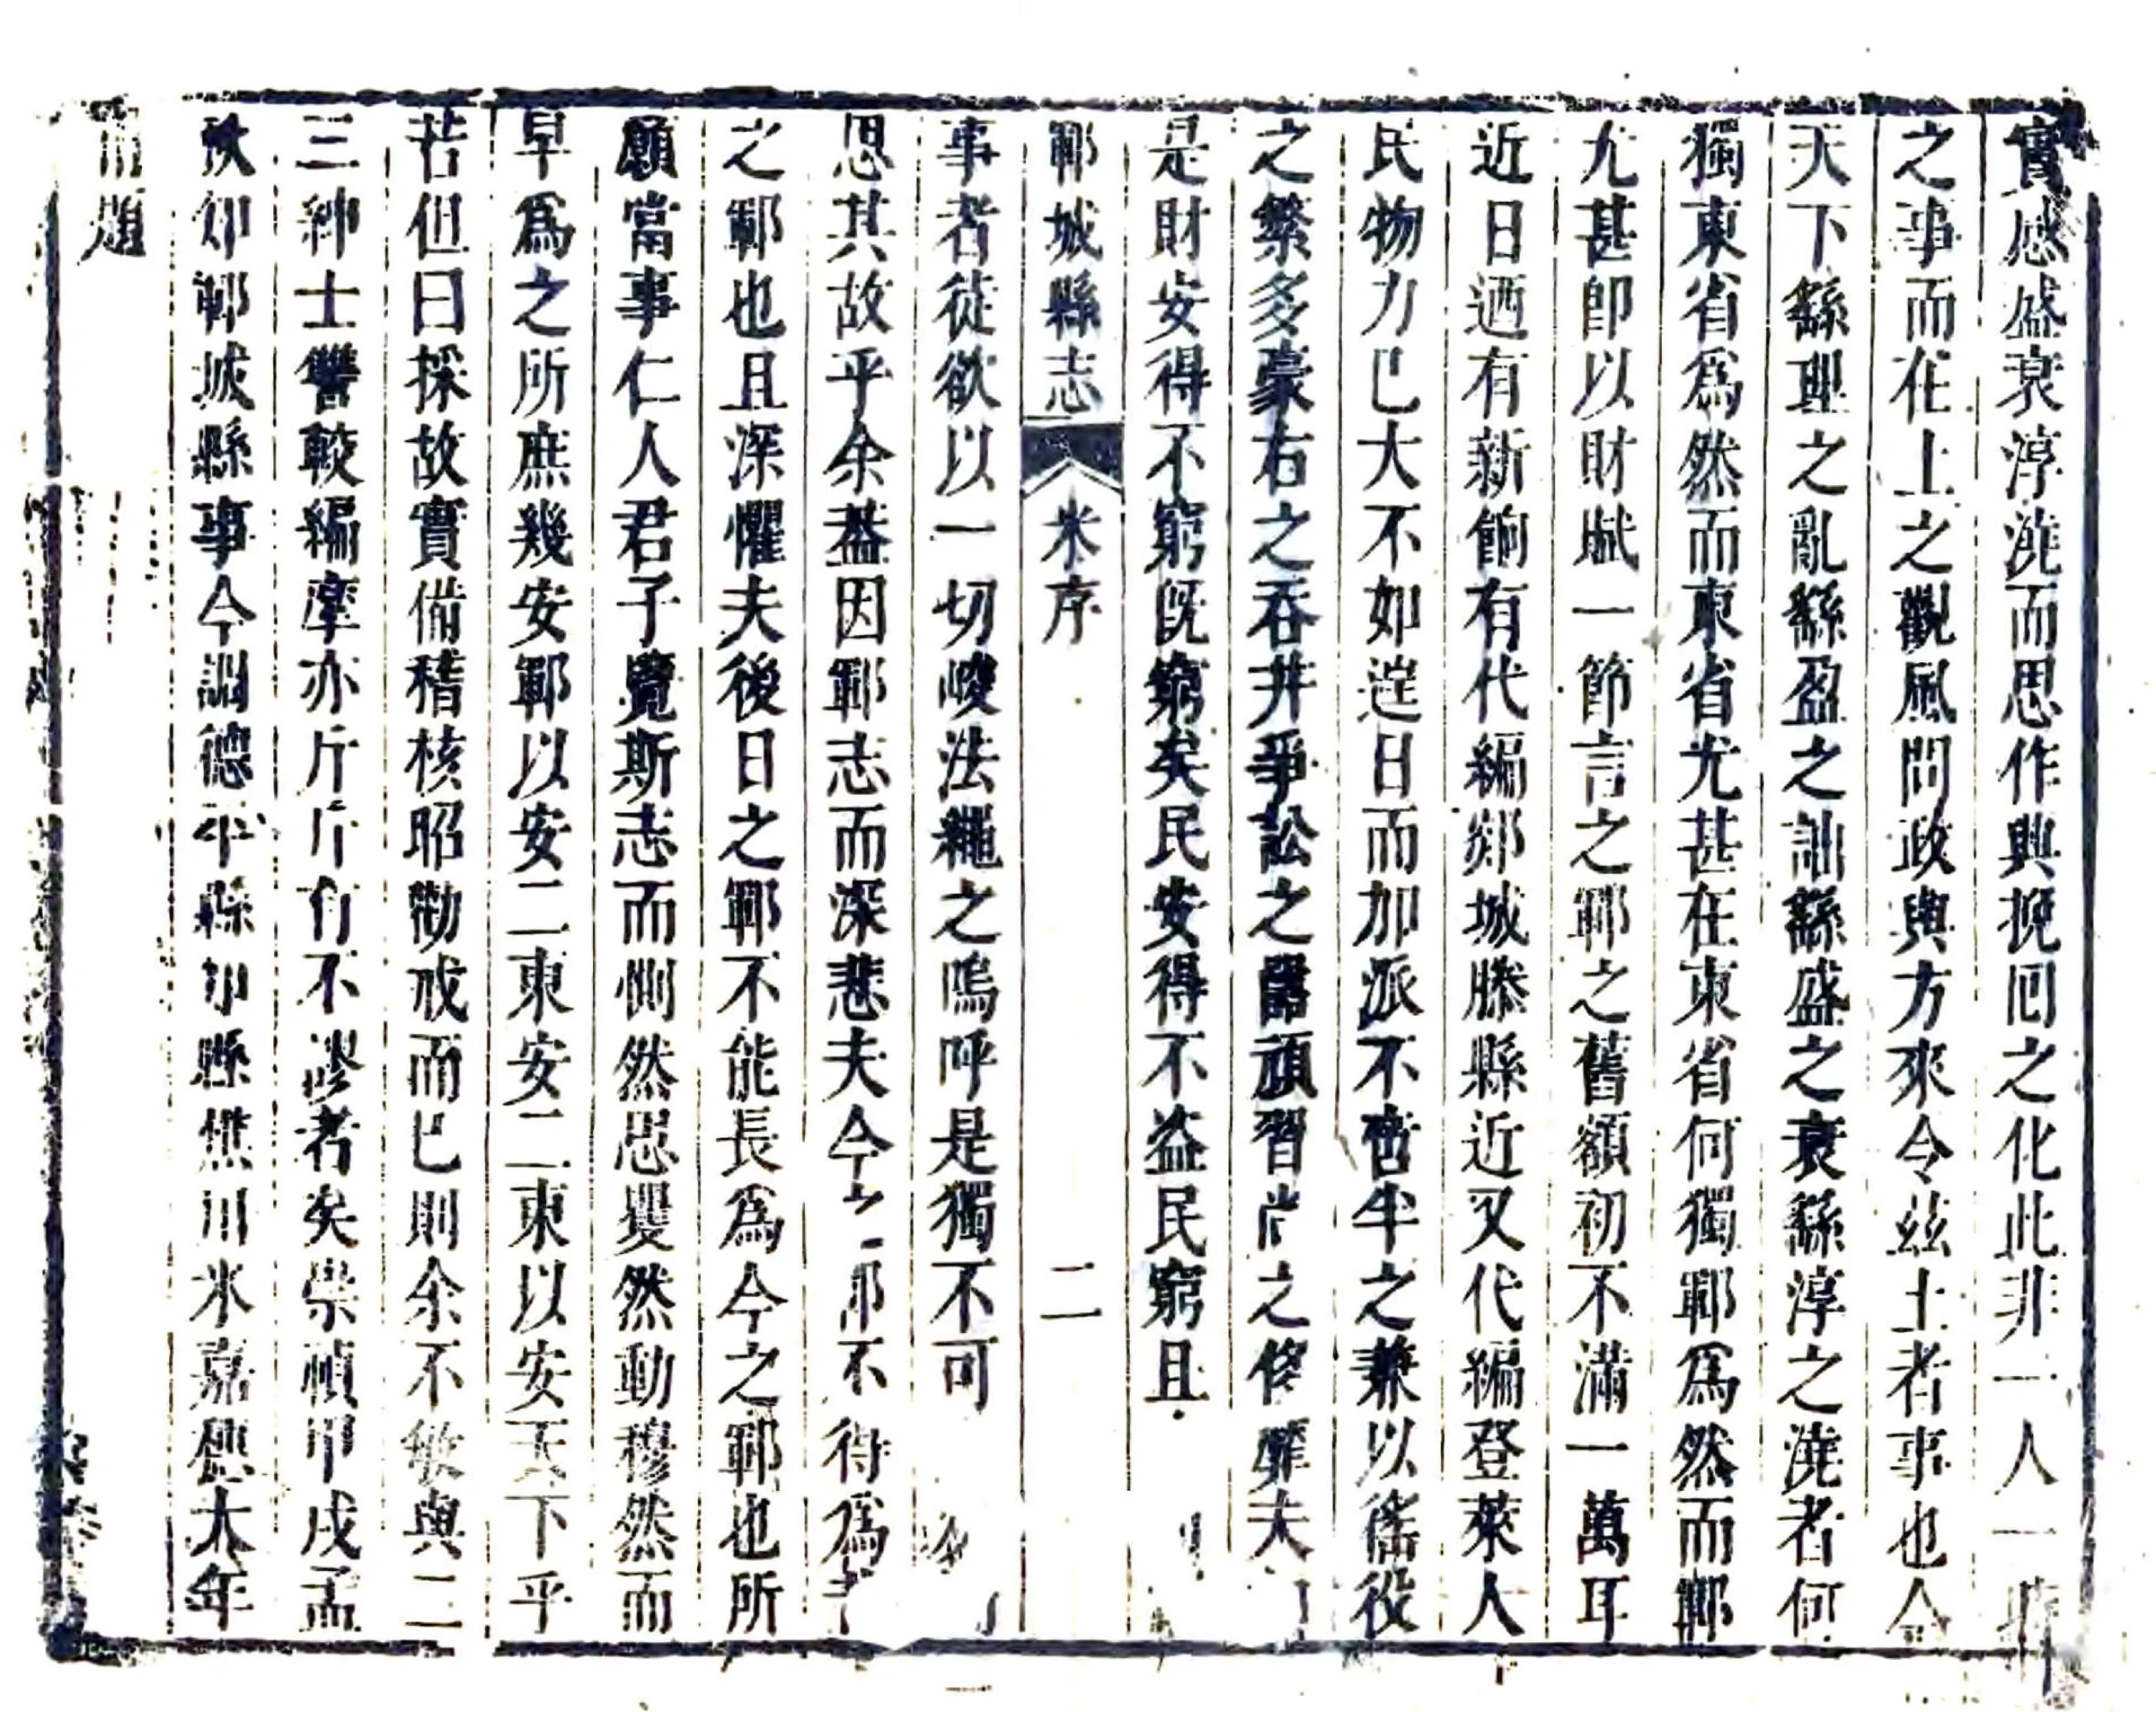 實感盛衰淳澆而思作興挽回之化此非一人一時
之事而在上之觀風問政與方來令兹土者事也今
天下繇理之亂繇盈之詘繇盛之衰繇淳之澆者何
獨東省爲然而東省尤甚在東省何獨鄆爲然而鄆
尤甚卽以財賦一節言之鄆之舊額初不滿一萬耳
近日迺有新餉有代編郯城滕縣近又代編登萊人
民物力已大不如逞日而加派不啻半之兼以徭役
之繁多豪右之吞并爭訟之囂頑習尚之侈靡夫
是財安得不窮旣窮矣民安得不盜民窮且
鄆城縣志 米序 二
事者徒欲以一切峻法繩之嗚呼是獨不可
思其故乎余葢因鄆志而深悲夫今之鄆不得爲
之鄆也且深懼夫後日之鄆不能長爲今之鄆也所
願當事仁人君子覽斯志而惻然思矍然動穆然而
早爲之所庶幾安鄆以安二東安二東以安天下乎
若但曰採故實備稽核昭勸戒而已則余不敏與二
三紳士讐較編摩亦斤斤有不謬者矣崇禎甲戌孟
秋知鄆城縣事今調德平縣知縣燋川米嘉穗大年
甫題